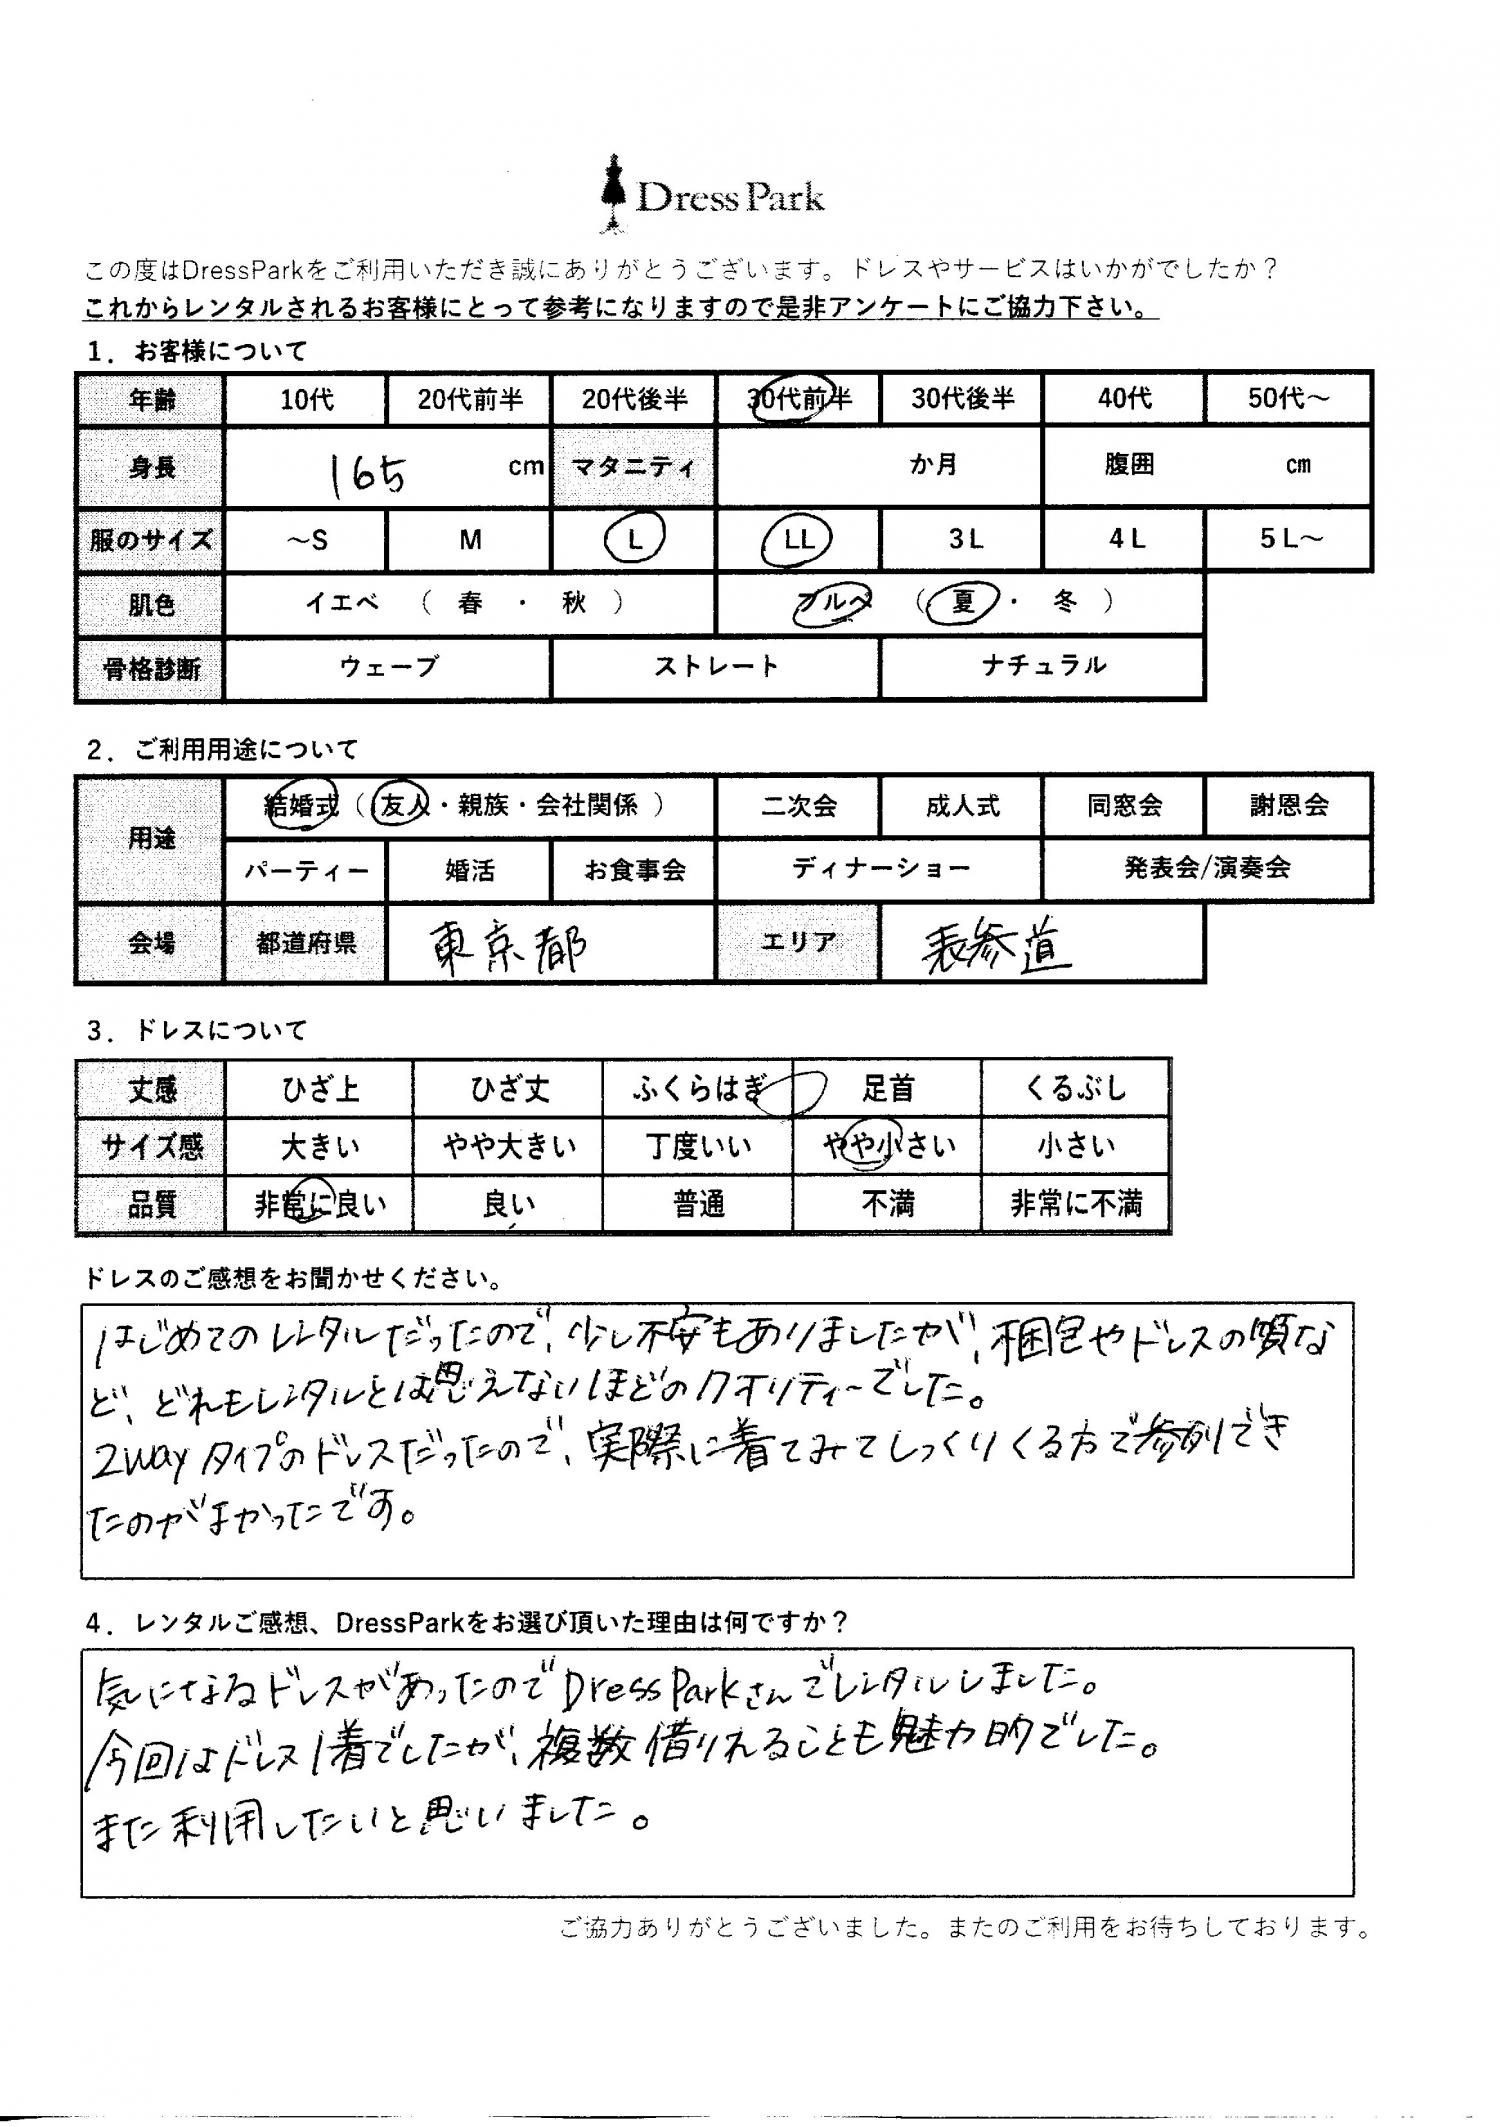 DressPark
この度はDressParkをご利用いただき誠にありがとうございます。ドレスやサービスはいかがでしたか？
これからレンタルされるお客様にとって参考になりますので是非アンケートにご協力下さい。
1．お客様について
年齢 10代 20代前半 20代後半 30代前半 30代後半 40代 50代～
身長 165 cm マタニティ か月 腹囲 cm
服のサイズ ～S M L LL 3L 4L 5L～
肌色 イエベ （ 春 ・ 秋 ） ブルベ （ 夏 ・ 冬 ）
骨格診断 ウェーブ ストレート ナチュラル
2．ご利用用途について
用途 結婚式（ 友人・親族・会社関係 ） 二次会 成人式 同窓会 謝恩会
パーティー 婚活 お食事会 ディナーショー 発表会/演奏会
会場 都道府県 東京都 エリア 表参道
3．ドレスについて
丈感 ひざ上 ひざ丈 ふくらはぎ 足首 くるぶし
サイズ感 大きい やや大きい 丁度いい やや小さい 小さい
品質 非常に良い 良い 普通 不満 非常に不満
ドレスのご感想をお聞かせください。
はじめてのレンタルだったので、少し不安もありましたが、梱包やドレスの質な
ど、どれもレンタルとは思えないほどのクオリティーでした。
2wayタイプのドレスだったので、実際に着てみてしっくりくる方で参列でき
たのがよかったです。
4．レンタルご感想、DressParkをお選び頂いた理由は何ですか？
気になるドレスがあったのでDressParkさんでレンタルしました。
今回はドレス1着でしたが、複数借りれることも魅力的でした。
また利用したいと思いました。
ご協力ありがとうございました。またのご利用をお待ちしております。